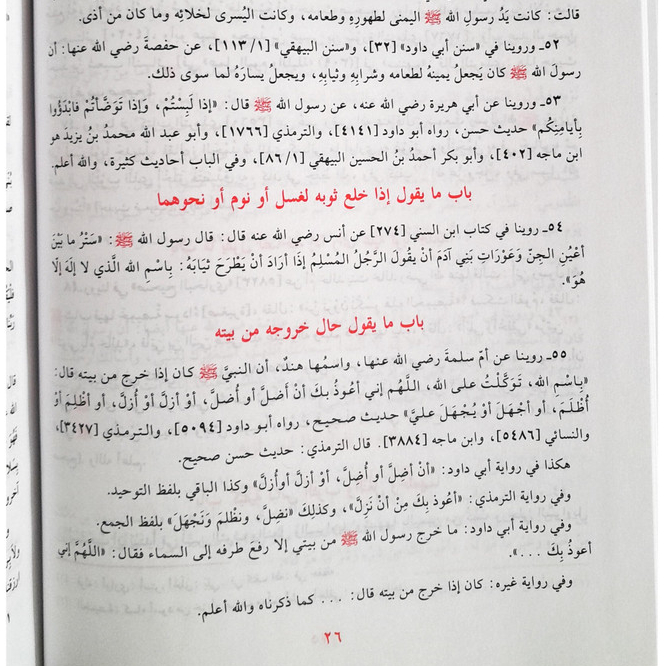 قالت: كانت يَدُ رسولِ الله ﷺ اليمنى لطهورِهِ وطعامه، وكانت اليُسرى لخلائِهِ وما كان من أذى.
٥٢ـ وروينا في «سنن أبي داود» [٣٢]، و«سنن البيهقي» [١/١١٣]، عن حفصةَ رضي الله عنها: أن
رسولَ الله ﷺ كان يَجعلُ يمينَهُ لطعامه وشرابِهِ وثيابِهِ، ويجعلُ يسارَهُ لما سوى ذلك.
٥٣ـ وروينا عن أبي هريرة رضي الله عنه، عن رسول الله ﷺ قال: «إذا لَبِسْتُمْ، وَإذا تَوَضَّأتُمْ فابْدَؤُوا
بِأيامِنِكُم» حديث حسن، رواه أبو داود [٤١٤١]، والترمذي [١٧٦٦]، وأبو عبد الله محمدُ بنُ يزيدَ هو
ابن ماجه [٤٠٢]، وأبو بكر أحمدُ بنُ الحسين البيهقي [١/٨٦]، وفي الباب أحاديث كثيرة، والله أعلم.
باب ما يقول إذا خلع ثوبه لغسل أو نوم أو نحوهما
٥٤ـ روينا في كتاب ابن السني [٢٧٤] عن أنس رضي الله عنه قال: قال رسول الله ﷺ: «سَتْرُ ما بَيْنَ
أعْيُنِ الجِنِّ وَعَوْرَاتِ بَني آدَمَ أنْ يَقُولَ الرَّجُلُ المُسْلِمُ إذَا أرَادَ أنْ يَطْرَحَ ثيَابَهُ: بِاسْمِ الله الَّذي لا إلَهَ إلَّا
هُوَ».
باب ما يقول حال خروجه من بيته
٥٥ـ روينا عن أمِّ سلمةَ رضي الله عنها، واسمُها هندٌ، أن النبيَّ ﷺ كان إذا خرج من بيته قال:
«بِاسْمِ الله، تَوَكَّلْتُ على الله، اللَّهُم إني أعُوذُ بكَ أنْ أضَلَّ أو أُضَلَّ، أوْ أزِلَّ أوْ أُزَلَّ، أو أظْلِمَ أوْ
أُظْلَمَ، أو أجْهَلَ أوْ يُجْهَلَ عليَّ» حديث صحيح، رواه أبو داود [٥٠٩٤]، والترمذي [٣٤٢٧]،
والنسائي [٥٤٨٦]، وابن ماجه [٣٨٨٤]. قال الترمذي: حديث حسن صحيح.
هكذا في رواية أبي داود: «أنْ أضِلَّ أو أُضِلَّ، أوْ أزلَّ أوأُزلَّ» وكذا الباقي بلفظ التوحيد.
وفي رواية الترمذي: «أعُوذ بِكَ مِنْ أنْ نَزِلَّ»، وكذلِكَ «نضِلَّ، ونظْلمَ وَنَجْهَلَ» بلفظ الجمع.
وفي رواية أبي داود: ما خرج رسول الله ﷺ من بيتي إلا رفعَ طرفه إلى السماء فقال: «اللَّهُمَّ إني
أعوذُ بِكَ . . .».
وفي رواية غيره: كان إذا خرج من بيته قال: . . . كما ذكرناه والله أعلم.
٢٦